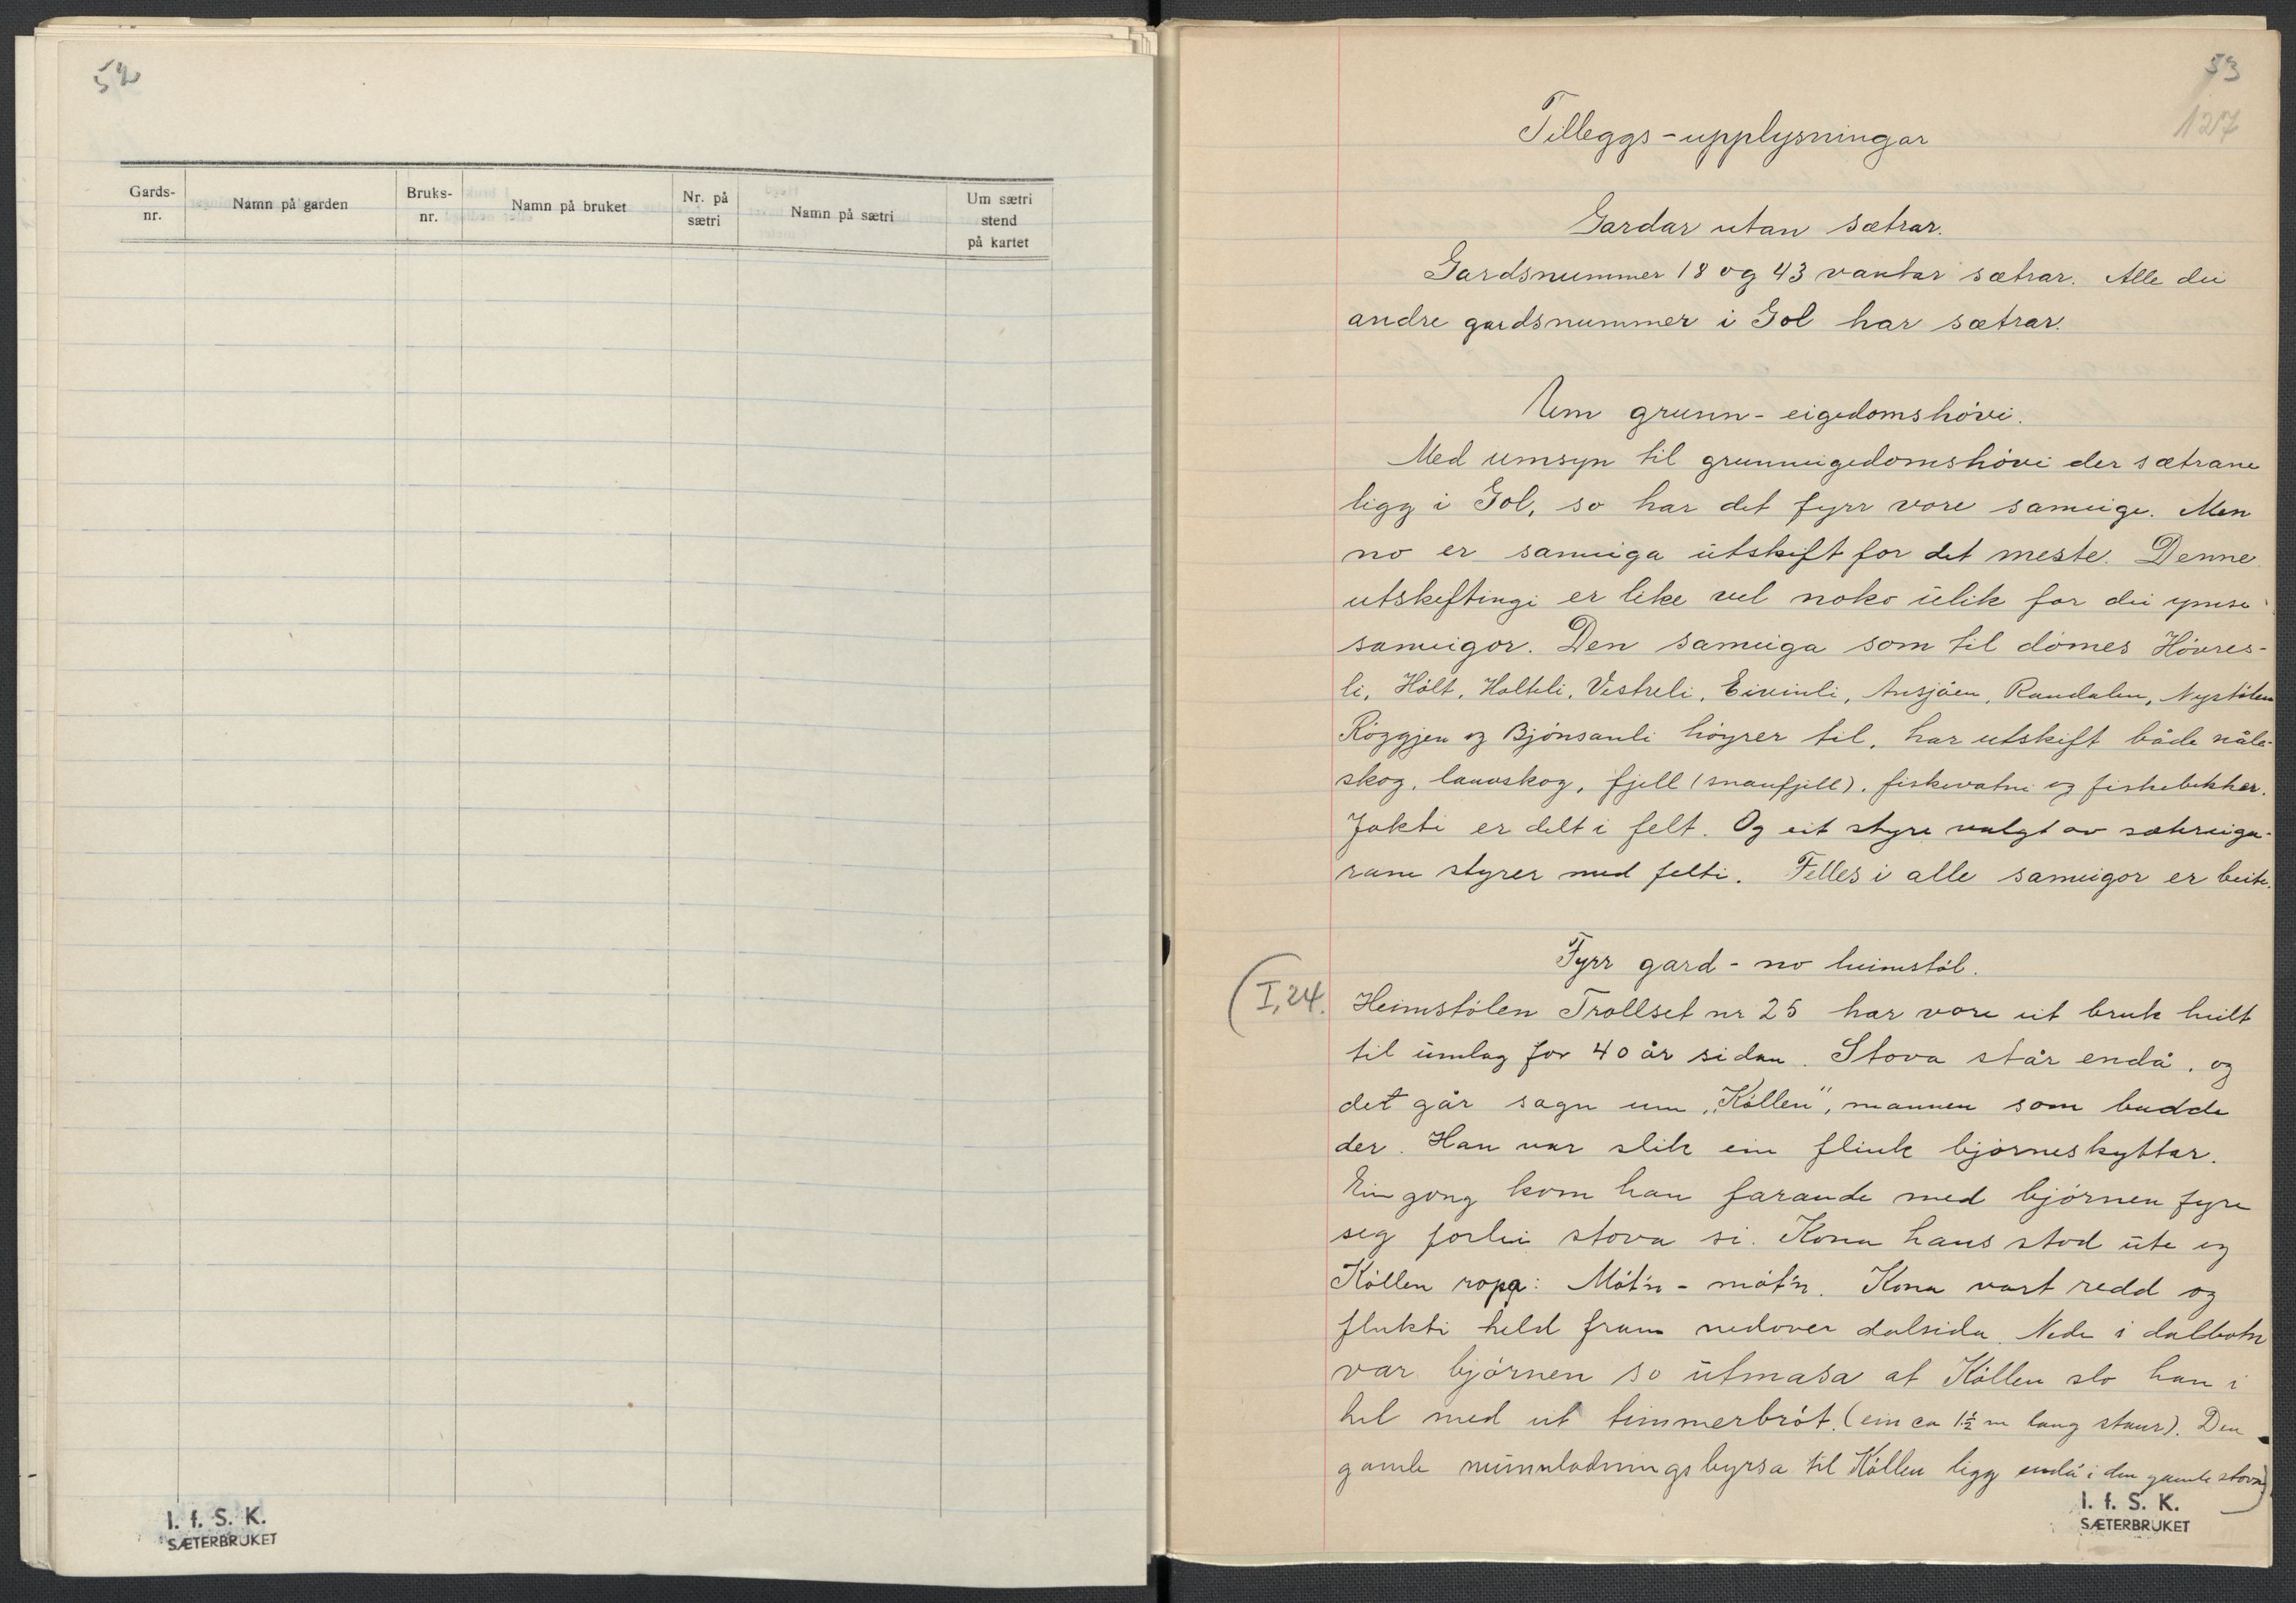 52
Gards-
nr.
Namn på garden
Bruks-
nr.
Namn på bruket
Nr. på
sætri
Namn på sætri
Um sætri
stend
på kartet
I. f. S. K.
SÆTERBRUKET
53
127
Tilleggs-upplysningar
Gardar utan sætrar.
Gardsnummer 18 og 43 vantar sætrar. Alle dei
andre gardsnummer i Gol har sætrar.
Um grunn-eigedomshövi.
Med umsyn til grunneigedomshövi der sætrane
ligg i Gol, so har det fyrr vore sameige. Men
no er sameiga utskift for det meste. Denne
utskiftingi er like vel noko ulik for dei ymse
sameigor. Den sameiga som til dömes Hövres-
li, Hólt, Holteli, Vestreli, Eivinli, Ansjöen, Raudalen, Nystölen
Röggjen og Bjönsanli höyrer til, har utskift både nåle-
skog, lauvskog, fjell (snaufjell), fiskevatni og fiskebekker.
Jakti er delt i felt. Og eit styre valgt av sætreiga-
rane styrer med felti. Felles i alle sameigor er beite.
Fyrr gard - no heimstöl.
(I, 24.
Heimstölen Trollset nr 25 har vore eit bruk heilt
til umlag for 40 år sidan. Stova står endå, og
det går sagn um „Kóllen", mannen som budde
der. Han var slik ein flink björneskyttar.
Ein gong kom han farande med björnen fyre
seg forbi stova si. Kona hans stod ute og
Kóllen ropa: Mót'n - mót'n. Kona vart redd og
flukti held fram nedover dalsida. Nede i dalbotn
var björnen so utmasa at Kóllen slo han i
hel med eit timmerbrót. (ein ca 1½ m lang staur). Den
gamle munnladningsbyrsa til Kóllen ligg endå i den gamle stova)
I. f. S. K.
SÆTERBRUKET